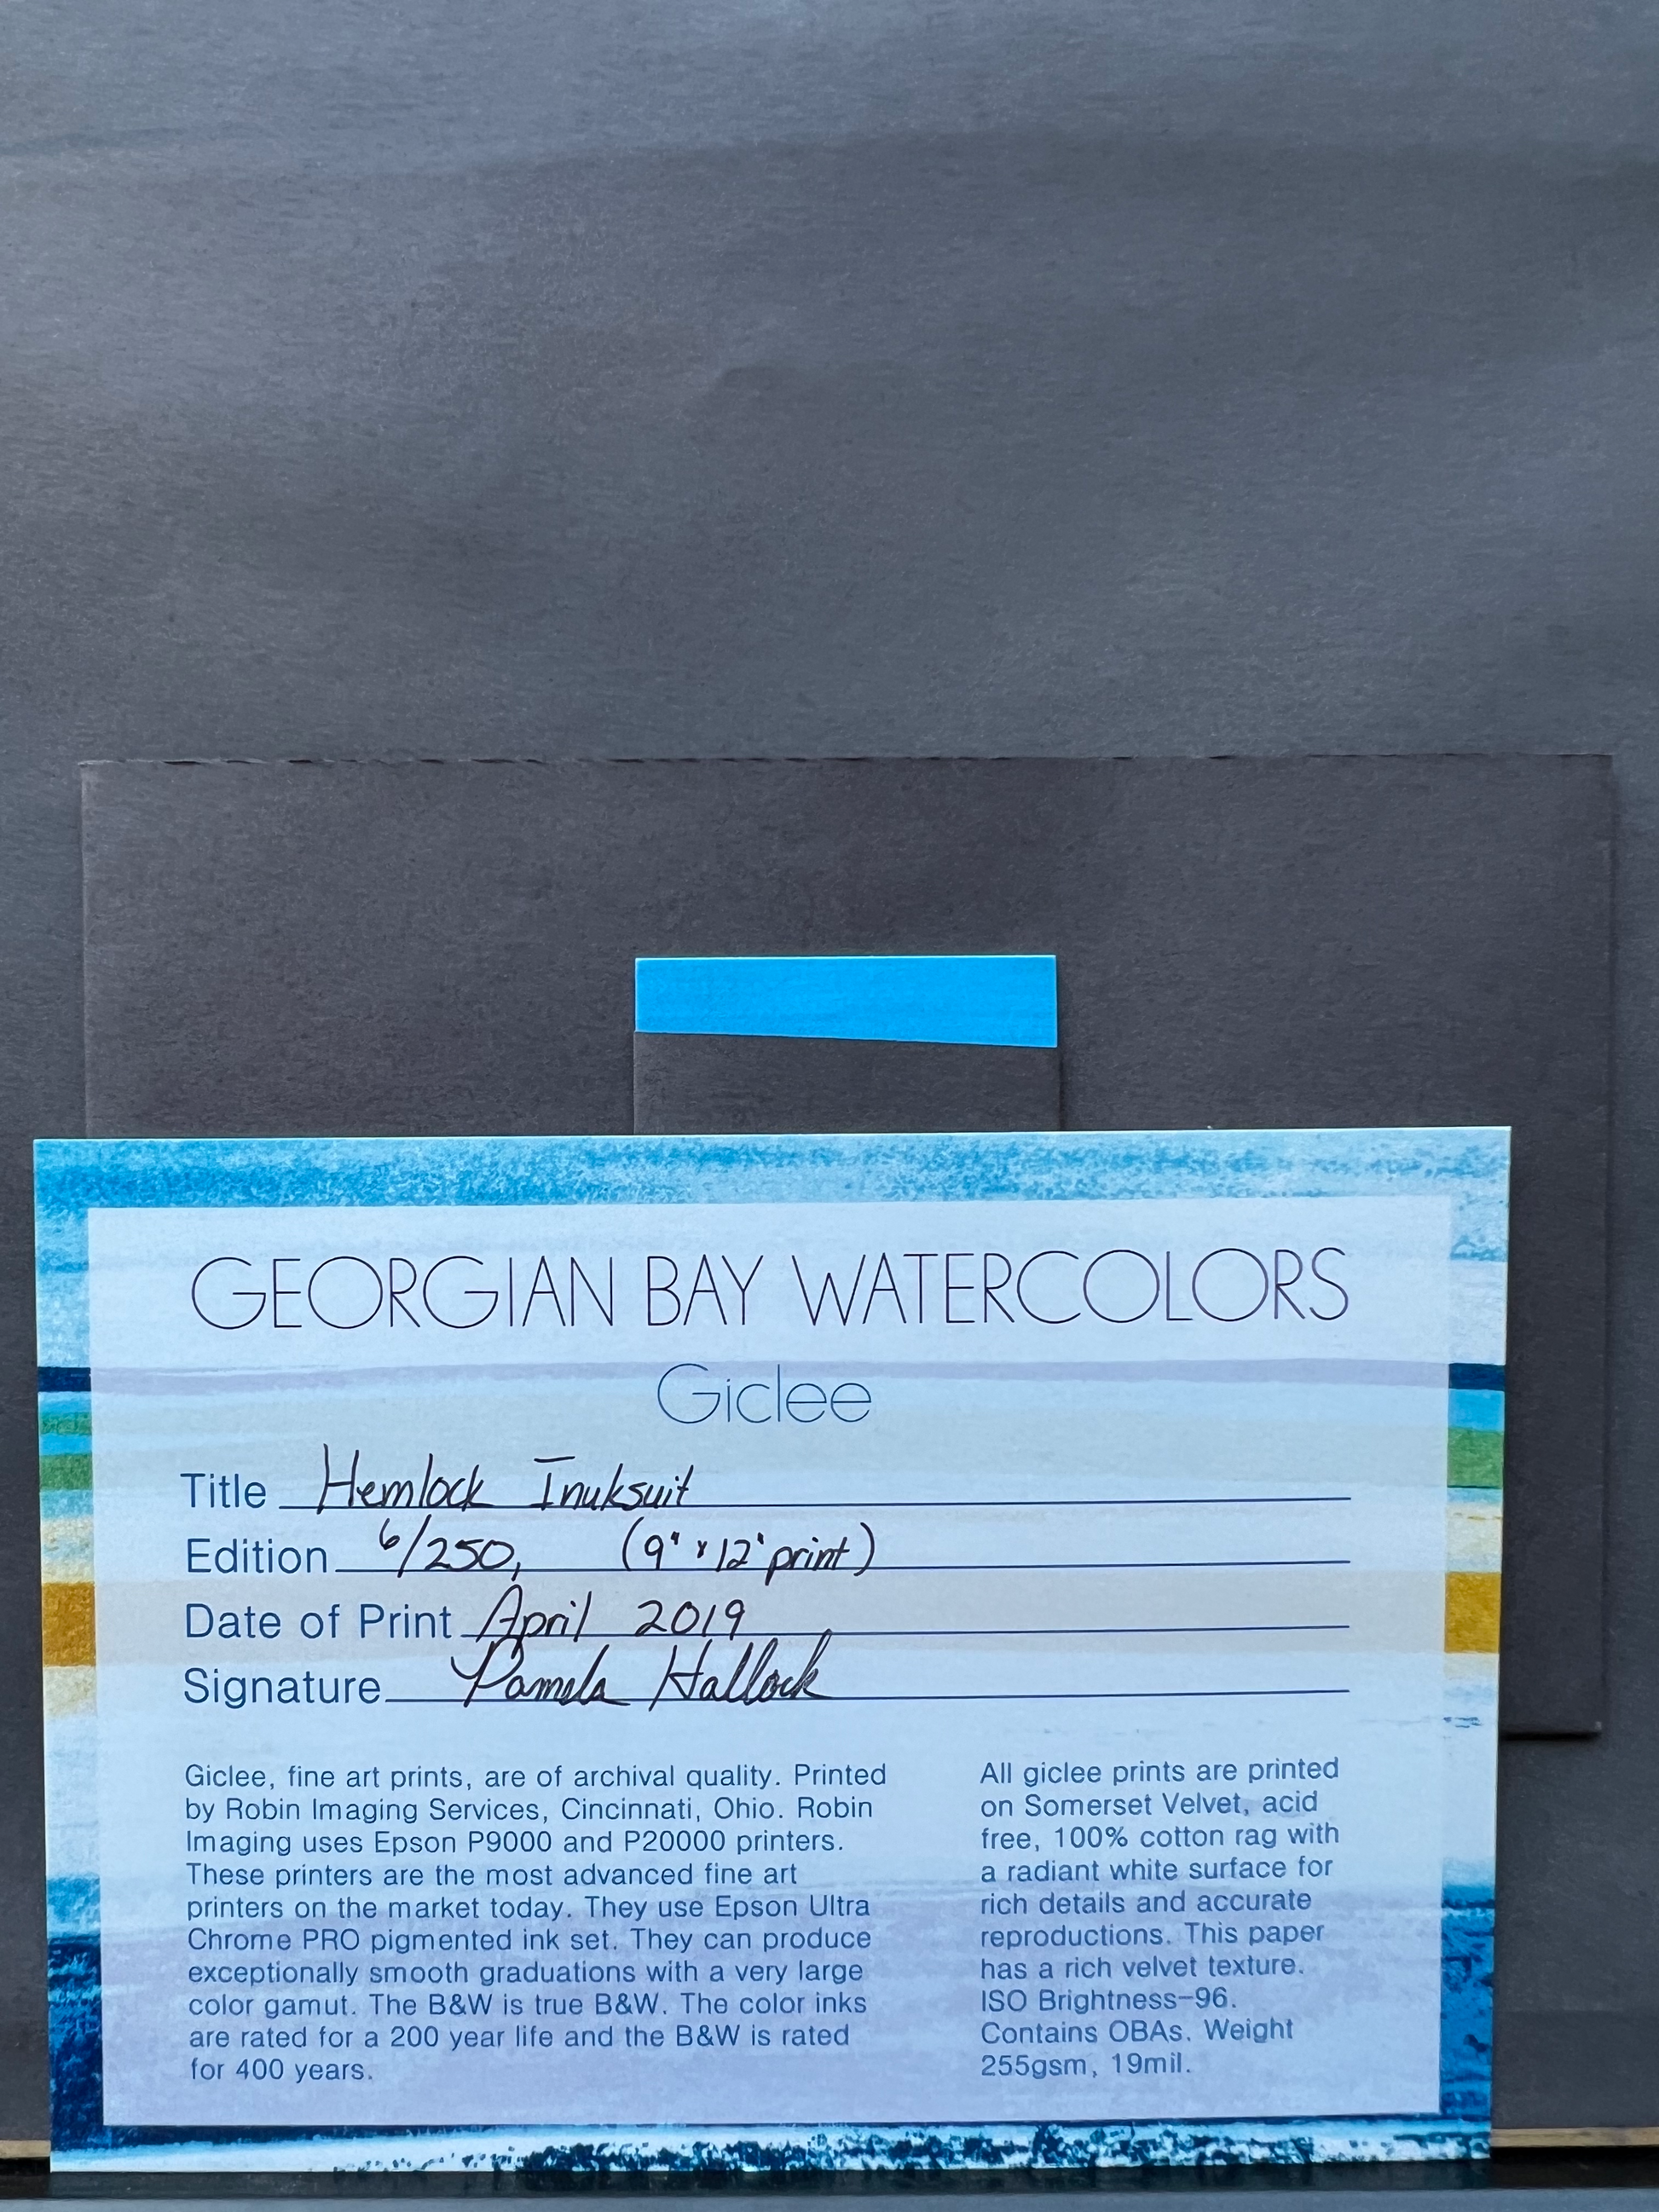 GEORGIAN BAY WATERCOLORS
Giclee
Title Hemlock Inuksuit
Edition 6/250, (9" x 12" print)
Date of Print April 2019
Signature Pamela Hallock
Giclee, fine art prints, are of archival quality. Printed
by Robin Imaging Services, Cincinnati, Ohio. Robin
Imaging uses Epson P9000 and P20000 printers.
These printers are the most advanced fine art
printers on the market today. They use Epson Ultra
Chrome PRO pigmented ink set. They can produce
exceptionally smooth graduations with a very large
color gamut. The B&W is true B&W. The color inks
are rated for a 200 year life and the B&W is rated
for 400 years.
All giclee prints are printed
on Somerset Velvet, acid
free, 100% cotton rag with
a radiant white surface for
rich details and accurate
reproductions. This paper
has a rich velvet texture.
ISO Brightness-96.
Contains OBAs. Weight
255gsm, 19mil.